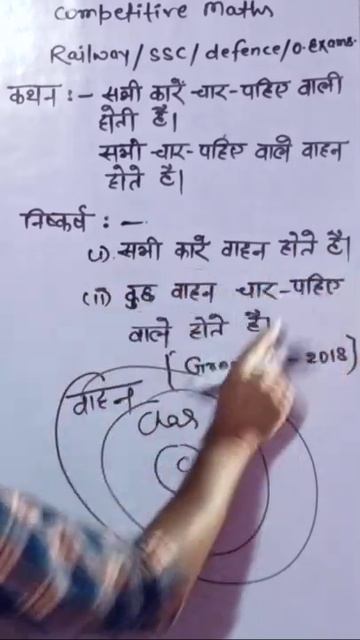 Competitive Maths
Railway/SSC/defence/o.exams.
कथन :- सभी कारें चार-पहिए वाली
होती है।
सभी चार-पहिए वाले वाहन
होते है।
निष्कर्ष : -
(i) सभी कारें वाहन होते है।
(ii) कुछ वाहन चार-पहिए
वाले होते है।
- 2018]
वाहन